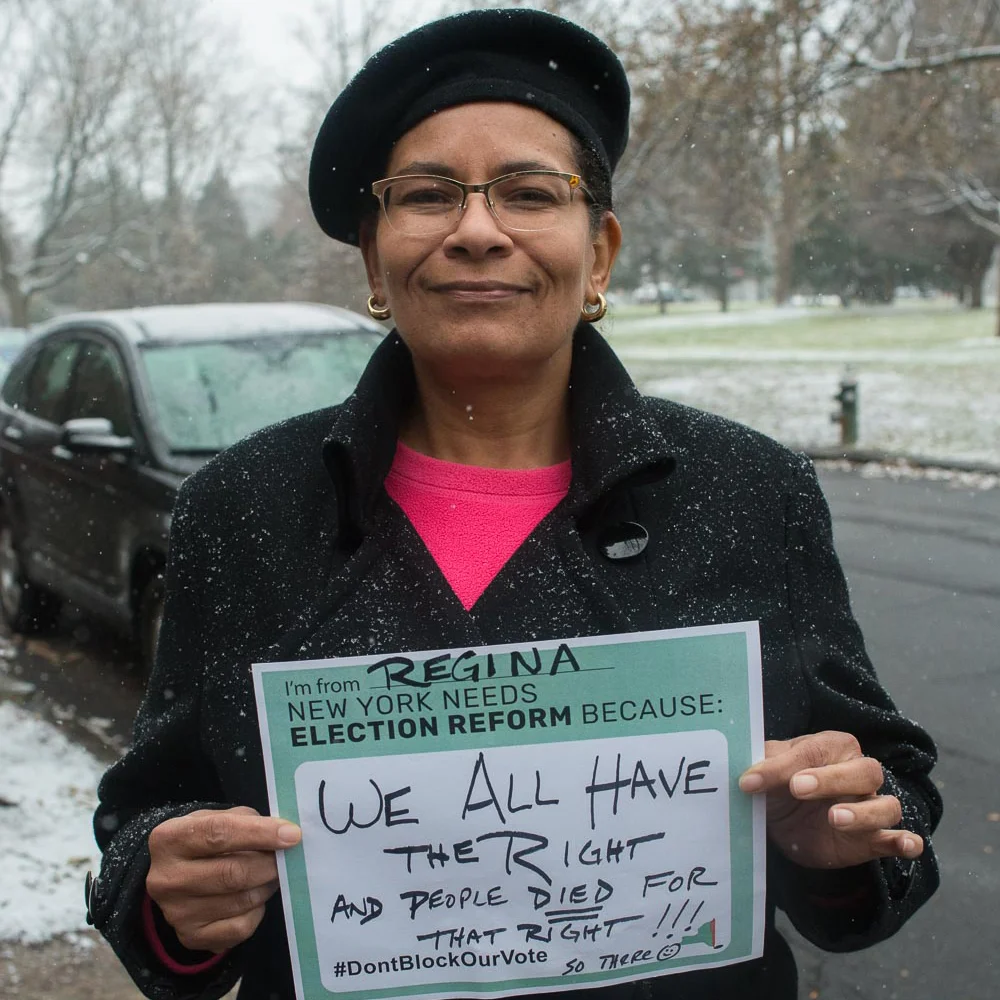 I'm from REGINA
NEW YORK NEEDS
ELECTION REFORM BECAUSE:
WE ALL HAVE
THE RIGHT
AND PEOPLE DIED FOR
THAT RIGHT !!!
#DontBlockOurVote SO THERE ☺